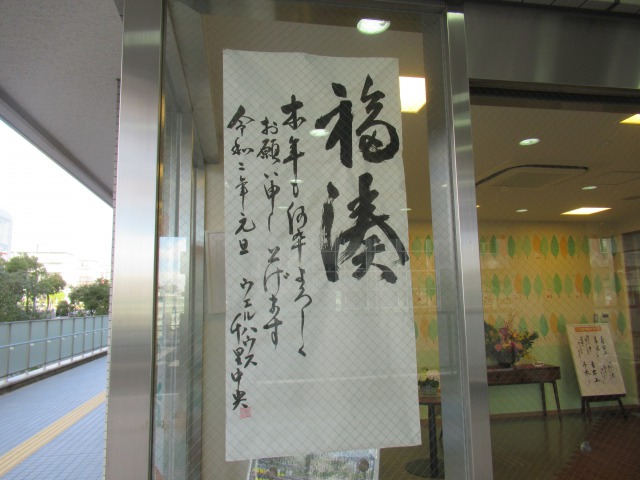 福湊
本年も何卒よろしく
お願い申し上げます
令和二年元旦
ウェルハウス
千里中央